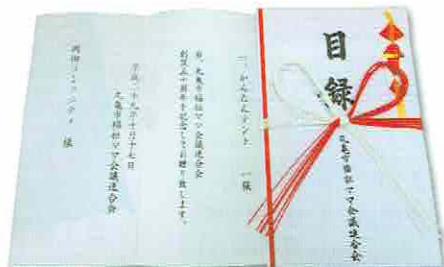 目録
丸亀市福祉ママ会議連合会
一、かんたんテント 一張
右、丸亀市福祉ママ会議連合会
創立五十周年を記念してお贈り致します。
平成二十九年十月十七日
丸亀市福祉ママ会議連合会
コミュニティ 様